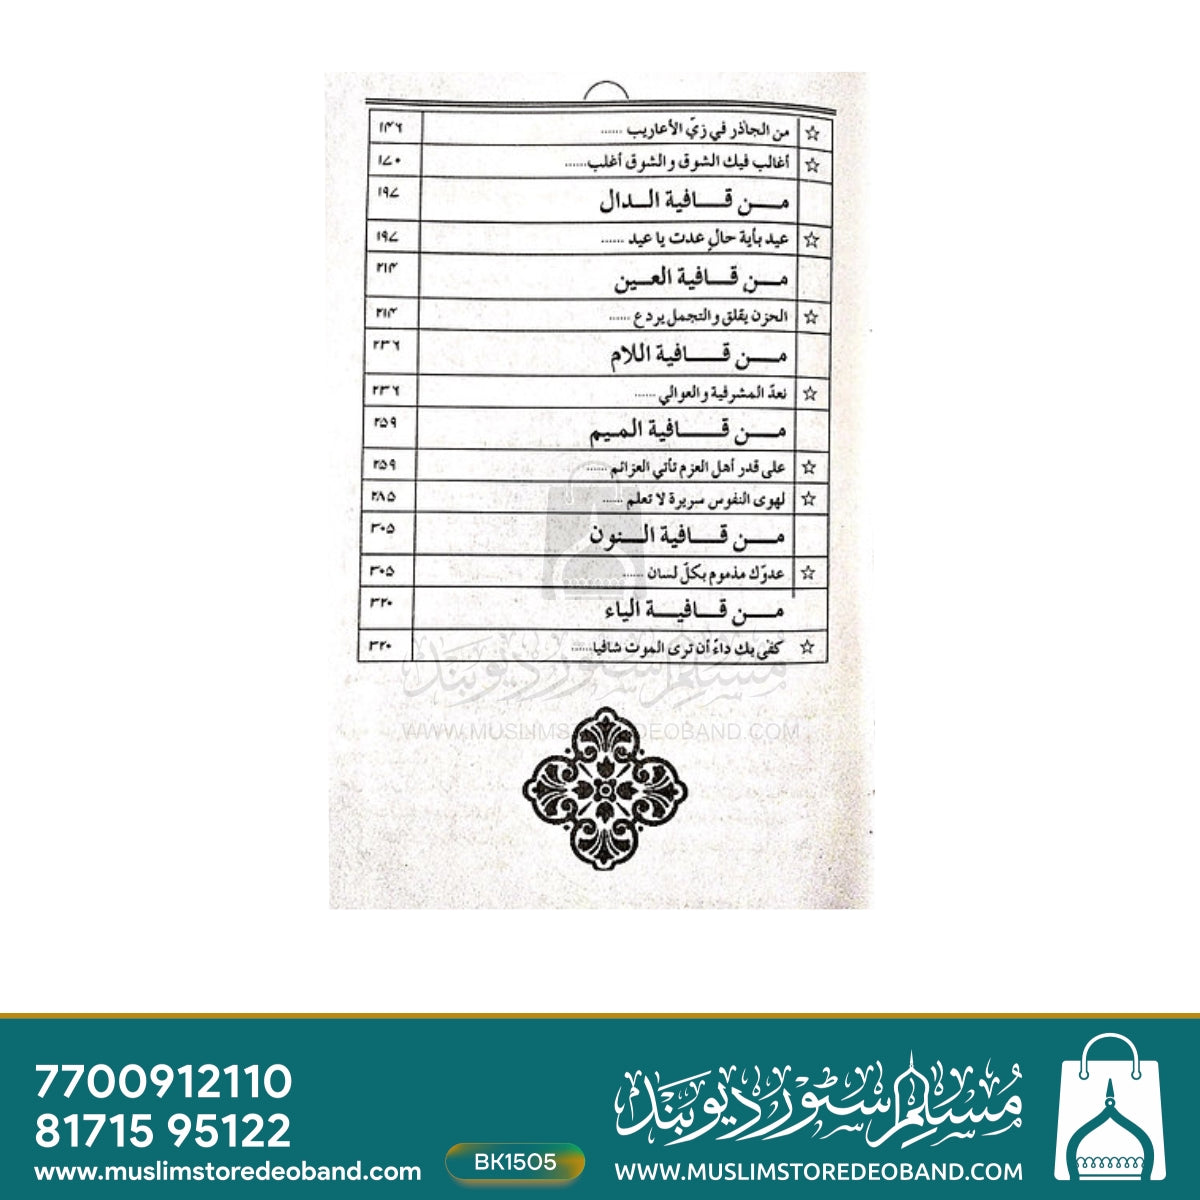 ☆ من الجاذر في زيّ الأعاريب ...... ۱۴۶
☆ أغالب فيك الشوق و الشوق أغلب...... ۱۷۰
مــن قــافية الــدال ۱۹۷
☆ عيد بأية حالٍ عدت يا عيد ...... ۱۹۷
مــن قــافية العــين ۲۱۴
☆ الحزن يقلق و التجمل يردع ...... ۲۱۴
مــن قــافية اللام ۲۳۶
☆ نعدّ المشرفية و العوالي ...... ۲۳۶
مــن قــافية الميم ۲۵۹
☆ على قدر أهل العزم تأتي العزائم ...... ۲۵۹
☆ لهوى النفوس سريرة لا تعلم ...... ۲۸۵
مــن قــافية الــنون ۳۰۵
☆ عدوّك مذموم بكلّ لسان ...... ۳۰۵
مــن قــافيــة الياء ۳۲۰
☆ كفى بك داءً أن ترى الموت شافيا...... ۳۲۰
مسلم سٹور دیوبند
WWW.MUSLIMSTOREDEOBAND.COM
7700912110
81715 95122
www.muslimstoredeoband.com
BK1505
مسلم سٹور دیوبند
WWW.MUSLIMSTOREDEOBAND.COM